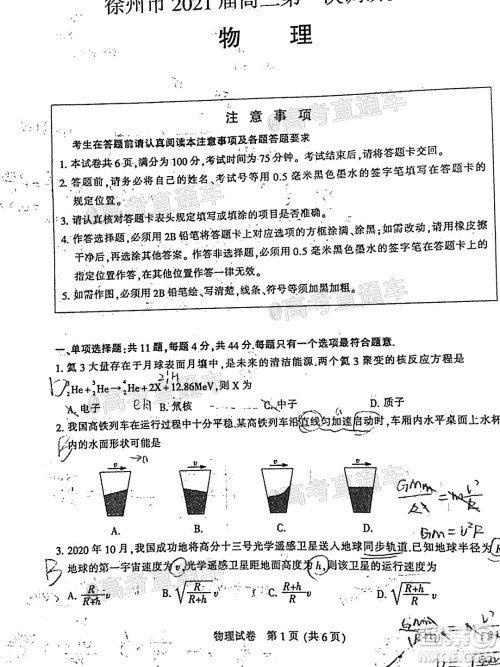 徐州市 2021 届高三第一次
物 理
注 意 事 项
考生在答题前请认真阅读本注意事项及各题答题要求
1. 本试卷共 6 页,满分为 100 分,考试时间为 75 分钟。考试结束后,请将答题卡交回。
2. 答题前,请务必将自己的姓名、考试号等用 0.5 毫米黑色墨水的签字笔填写在答题卡的规定位置。
3. 请认真核对答题卡表头规定填写或填涂的项目是否准确。
4. 作答选择题,必须用 2B 铅笔将答题卡上对应选项的方框涂满、涂黑;如需改动,请用橡皮擦干净后,再选涂其他答案。作答非选择题,必须用 0.5 毫米黑色墨水的签字笔在答题卡上的指定位置作答,在其他位置作答一律无效。
5. 如需作图,必须用 2B 铅笔绘、写清楚,线条、符号等须加黑加粗。
一、单项选择题:共 11 题,每题 4 分,共 44 分。每题只有一个选项最符合题意.
1. 氦 3 大量存在于月球表面月壤中,是未来的清洁能源. 两个氦 3 聚变的核反应方程是
D ³₂He+³₂He→⁴₂He+2X+12.86MeV,则 X 为
A. 电子 B. 氘核 C. 中子 D. 质子
2. 我国高铁列车在运行过程中十分平稳. 某高铁列车沿直线匀加速启动时,车厢内水平桌面上水杯
B 内的水面形状可能是
v v v v
A. B. C. D.
GM = v²R
3. 2020 年 10 月,我国成功地将高分十三号光学遥感卫星送入地球同步轨道. 已知地球半径为 R,
B 地球的第一宇宙速度为 v,光学遥感卫星距地面高度为 h,则该卫星的运行速度为
A. R/(R+h) v B. √(R/(R+h)) v C. (R+h)/R v D. √((R+h)/R) v
物理试卷 第 1 页 (共 6 页)
@高考直通车